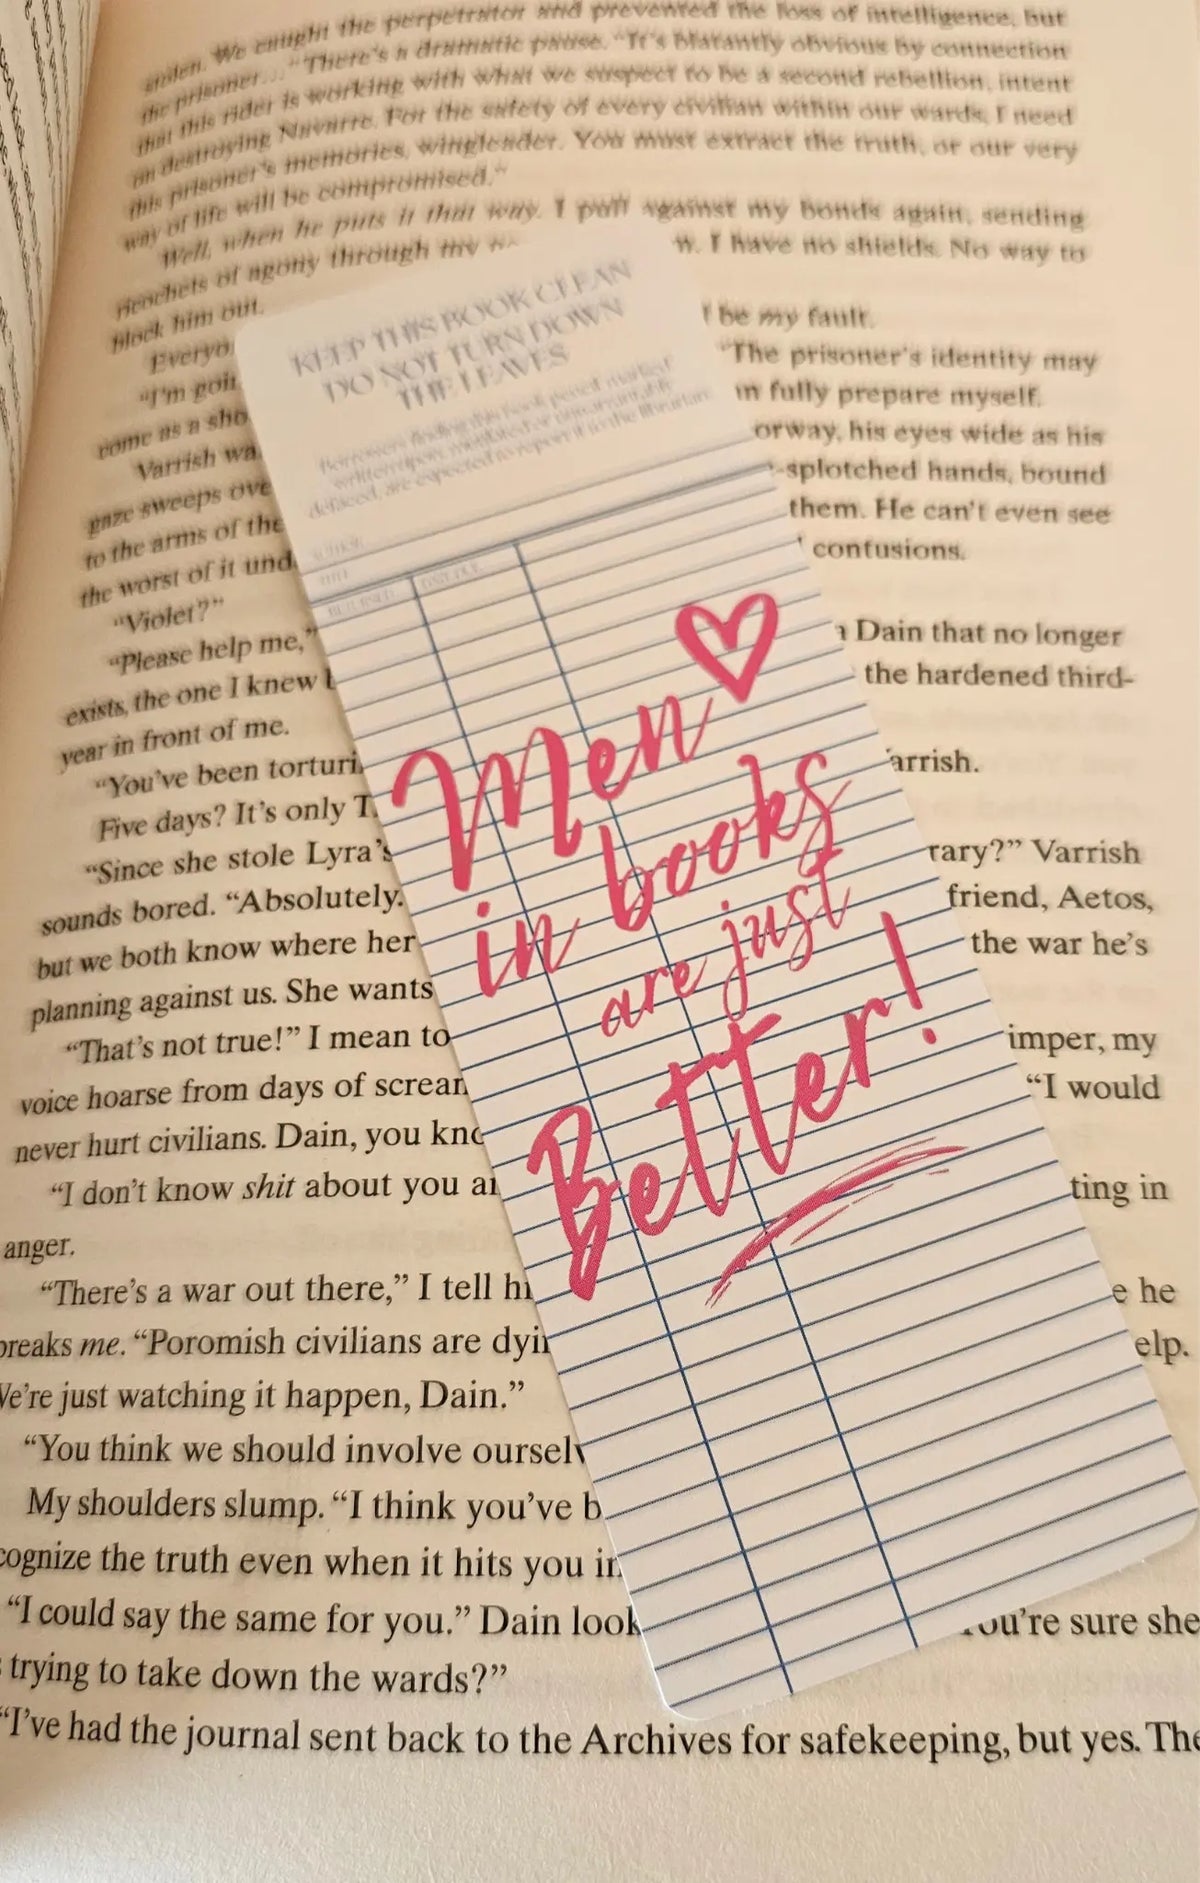 stolen. We caught the perpetrator and prevented the loss of intelligence, but
the prisoner… "There's a dramatic pause. "It's blatantly obvious by connection
that this rider is working with what we suspect to be a second rebellion, intent
on destroying Navarre. For the safety of every civilian within our wards, I need
this prisoner's memories, wingleader. You must extract the truth, or our very
way of life will be compromised."
Well, when he puts it that way. I pull against my bonds again, sending
ricochets of agony through my w. I have no shields. No way to
block him out.
I be my fault.
Everyo
"The prisoner's identity may
"I'm goin
in fully prepare myself.
come as a sho
orway, his eyes wide as his
Varrish wa
-splotched hands, bound
gaze sweeps ove
them. He can't even see
to the arms of the
contusions.
the worst of it und
"Violet?"
"Please help me,"
Dain that no longer
exists, the one I knew
the hardened third-
year in front of me.
"You've been torturi
arrish.
Five days? It's only T
"Since she stole Lyra's
rary?" Varrish
sounds bored. "Absolutely.
friend, Aetos,
but we both know where her
the war he's
planning against us. She wants
"That's not true!" I mean to
imper, my
voice hoarse from days of scream
"I would
never hurt civilians. Dain, you kno
"I don't know shit about you an
ting in
anger.
"There's a war out there," I tell hi
e he
breaks me. "Poromish civilians are dyin
elp.
We're just watching it happen, Dain."
"You think we should involve ourselv
My shoulders slump. "I think you've b
cognize the truth even when it hits you in
"I could say the same for you." Dain look
You're sure she
s trying to take down the wards?"
"I've had the journal sent back to the Archives for safekeeping, but yes. The
KEEP THIS BOOK CLEAN
DO NOT TURN DOWN
THE LEAVES
Borrowers finding this book pencil-marked,
written upon, mutilated or unwarrantably
defaced, are expected to report it to the librarian.
AUTHOR
TITLE
RETURNED
DATE DUE
Men
in books
are just
Better!